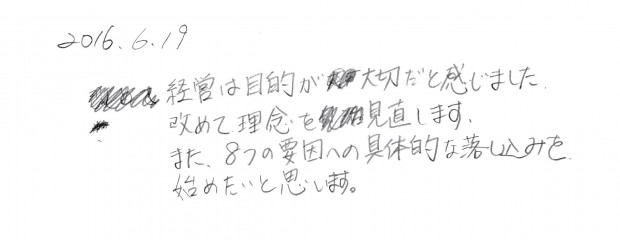 2016.6.19
経営は目的が大切だと感じました.
改めて理念を見直します.
また、8つの要因への具体的な落し込みを
始めたいと思します。